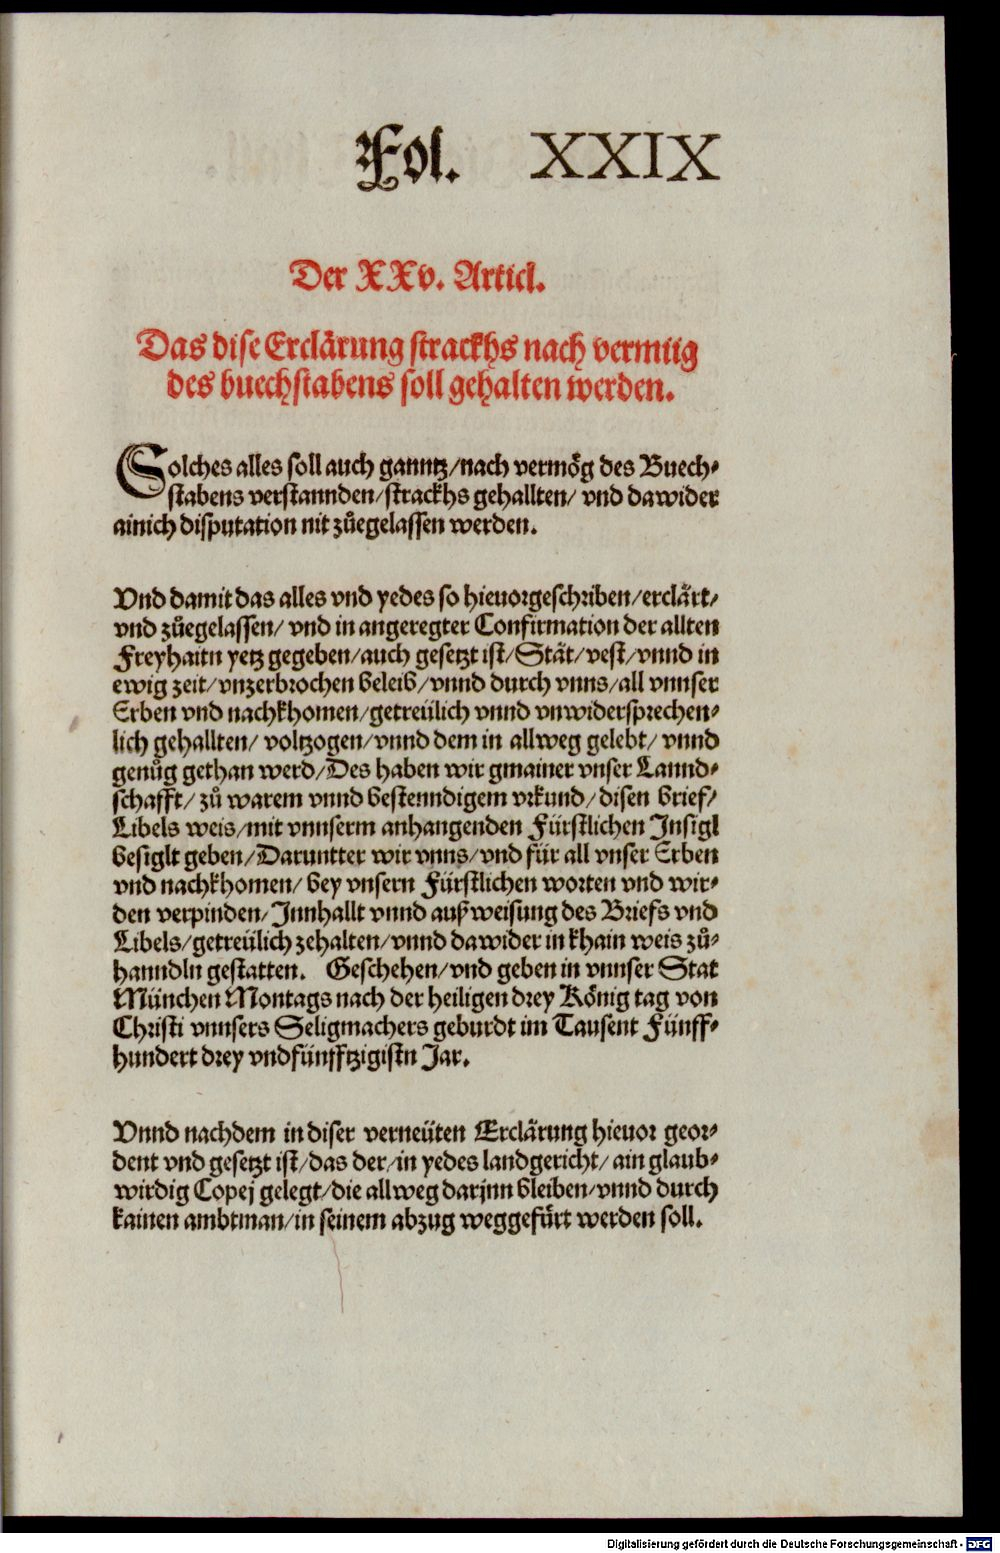 Fol. XXIX
Der XXv. Articl.
Das dise Erclärung strackhs nach vermüg
des buechstabens soll gehalten werden.
Solches alles soll auch ganntz/nach vermög des Buech⸗
stabens verstannden/strackhs gehallten/ vnd dawider
ainich disputation nit zůegelassen werden.
Vnd damit das alles vnd yedes so hieuorgeschriben/erclärt/
vnd zůegelassen/ vnd in angeregter Confirmation der allten
Freyhaitn yetz gegeben/auch gesetzt ist/Stät/vest/vnnd in
ewig zeit/vnzerbrochen beleib/vnnd durch vnns/all vnnser
Erben vnd nachkhomen/getreülich vnnd vnwidersprechen⸗
lich gehallten/ voltzogen/vnnd dem in allweg gelebt/ vnnd
genůg gethan werd/Des haben wir gmainer vnser Lannd⸗
schafft/ zů warem vnnd bestenndigem vrkund/ disen brief/
Libels weis/mit vnnserm anhangenden Fürstlichen Insigl
besiglt geben/Daruntter wir vnns/vnd für all vnser Erben
vnd nachkhomen/ bey vnsern Fürstlichen worten vnd wir⸗
den verpinden/Innhallt vnnd außweisung des Briefs vnd
Libels/getreülich zehalten/vnnd dawider in khain weis zů⸗
hanndln gestatten. Geschehen/vnd geben in vnnser Stat
München Montags nach der heiligen drey König tag von
Christi vnnsers Seligmachers geburdt im Tausent Fünff⸗
hundert drey vndfünfftzigistn Jar.
Vnnd nachdem in diser verneüten Erclärung hieuor geor⸗
dent vnd gesetzt ist/das der/in yedes landgericht/ ain glaub⸗
wirdig Copej gelegt/die allweg darjnn bleiben/vnnd durch
kainen ambtman/in seinem abzug weggefürt werden soll.
Digitalisierung gefördert durch die Deutsche Forschungsgemeinschaft - DFG